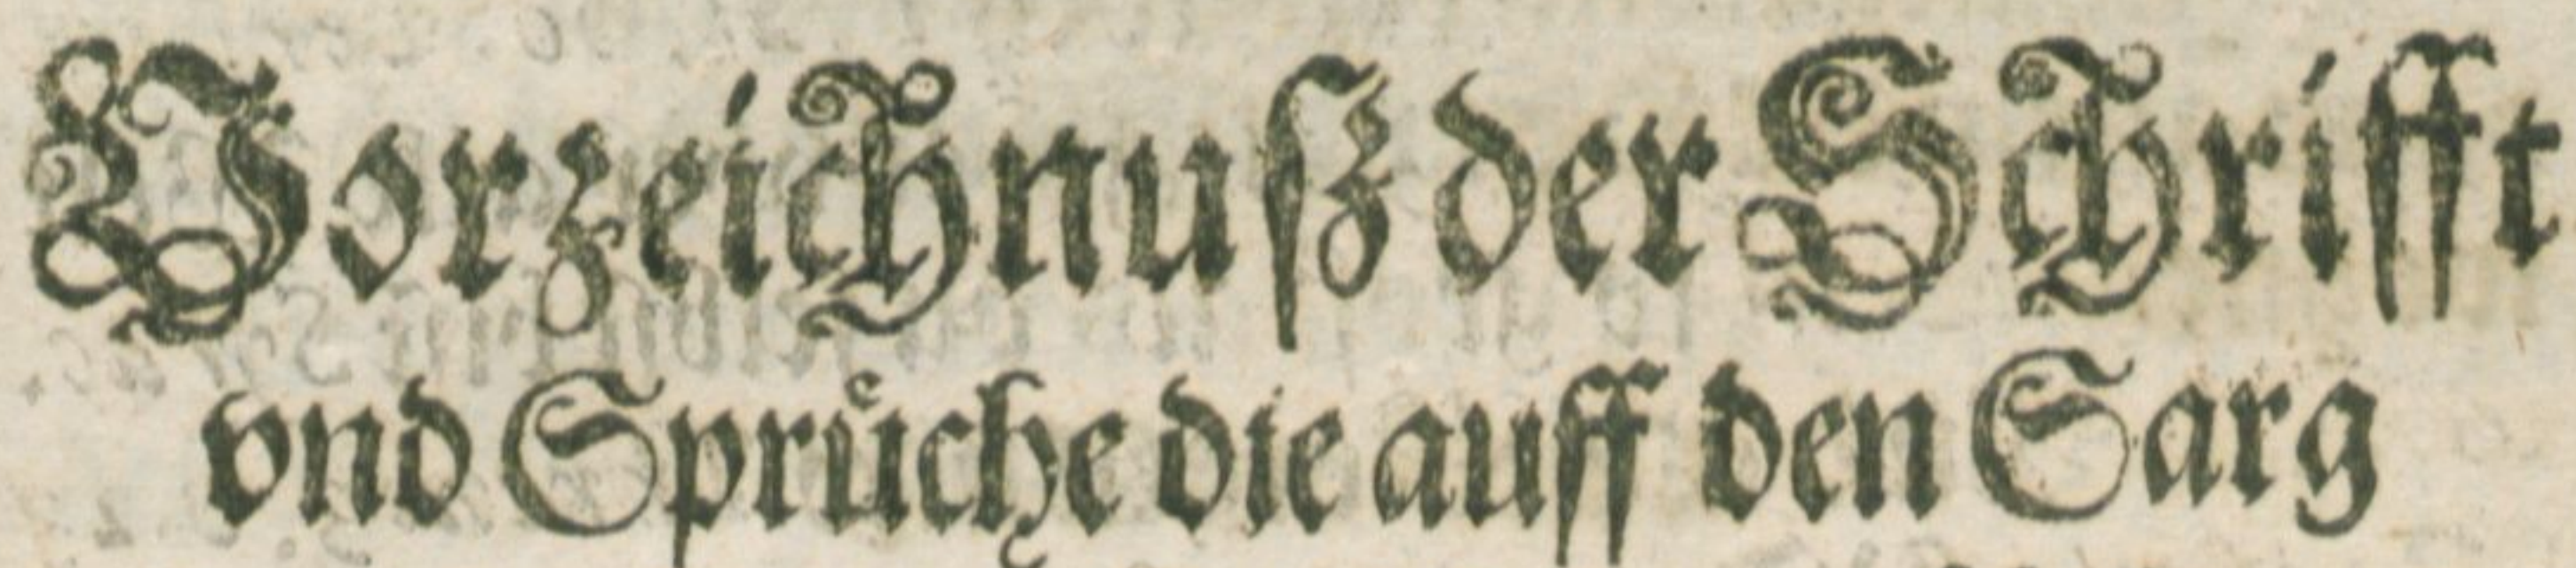 Vorzeichnuß der Schrifft
vnd Sprüche die auff den Sarg